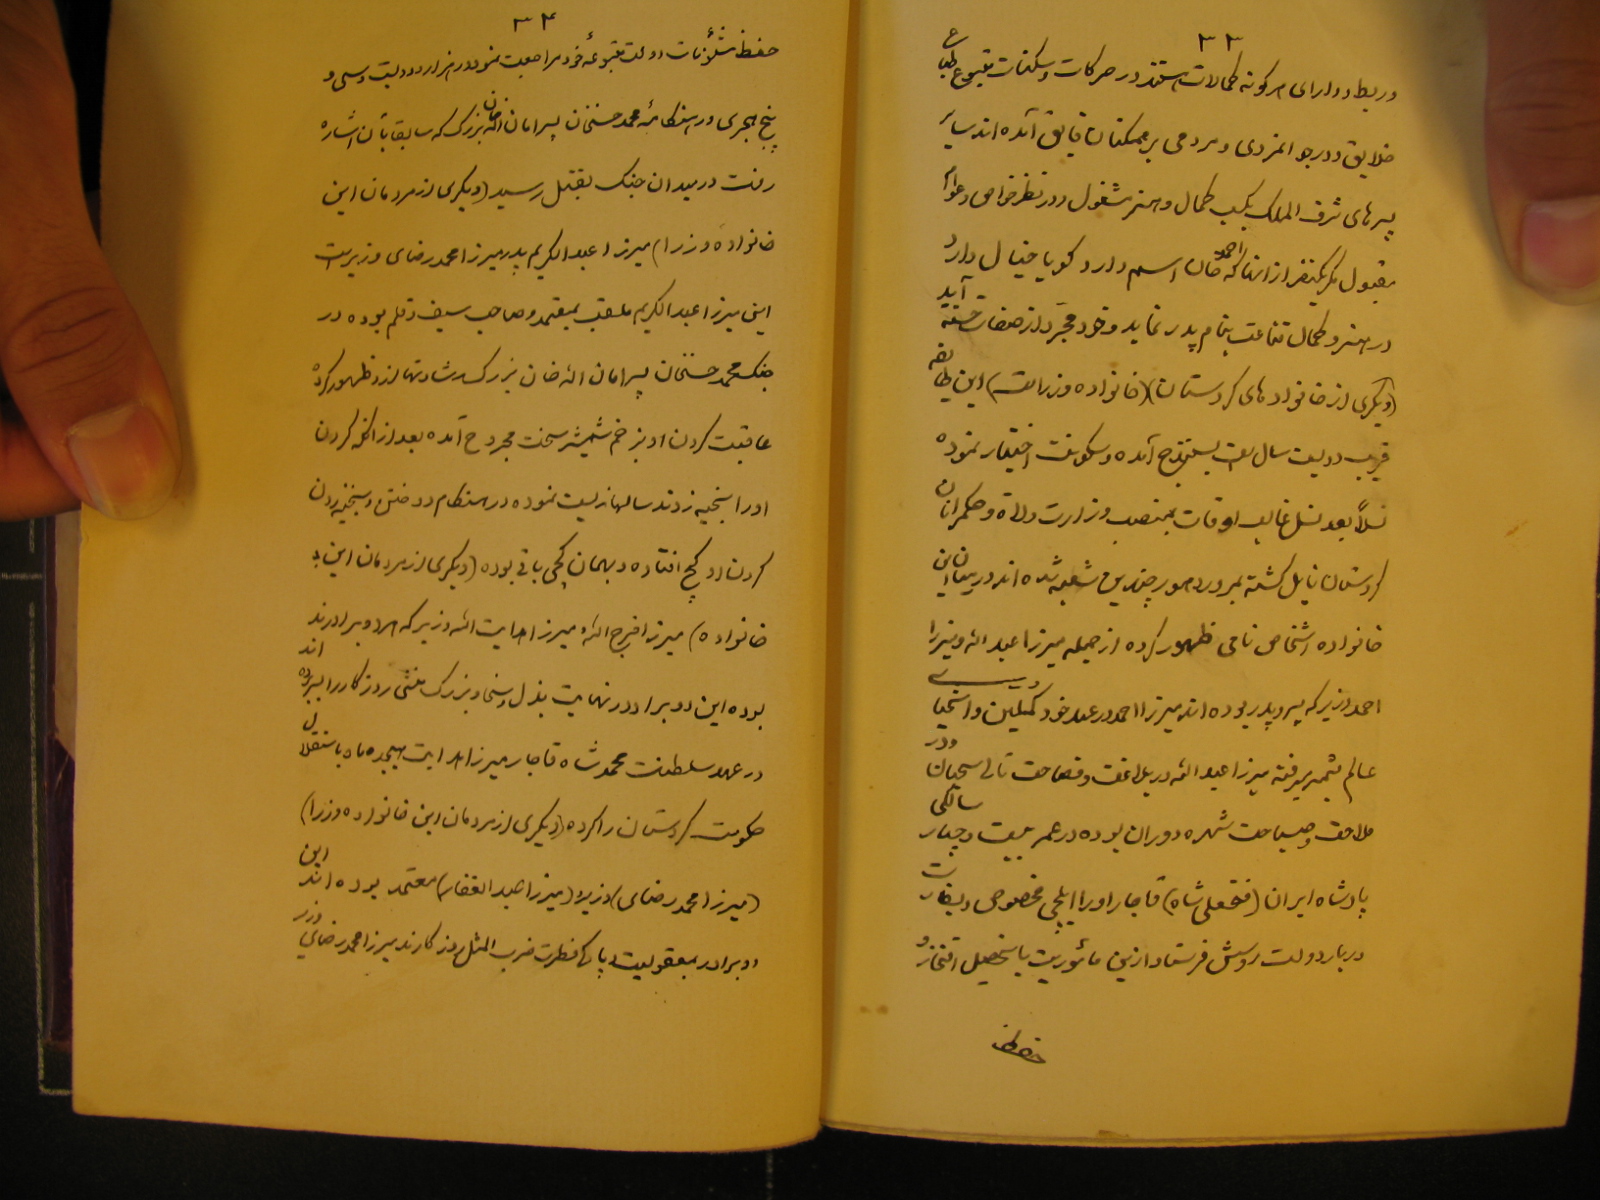 ۳۳
در ربط و دارای هرگونه کمالات هستند در حرکات و سکنات متبوع طباع
خلایق و در جوانمردی و مردمی بر همکنان فایق آمده‌اند سایر
پسرهای شرف الملک بکسب کمال و هنر مشغول و در نظر خواص و عوام
مقبول مگر یکنفر از آنها که احمد خان اسم دارد گویا خیال دارد
در هنر و کمال قناعت بنام پدر نماید و خود مجرد از صفات حسنه آید
(دیگری از خانوادهای کردستان) (خانواده وزراست) این طایفه
قریب دویست سال است بسنندج آمده و سکونت اختیار نموده
نسلاً بعد نسل غالب اوقات بمنصب وزارت ولاة و حکمرانان
کردستان نایل گشته بمرور دهور چندین شعبه شده‌اند در میان این
خانواده اشخاص نامی ظهور کرده از جمله میرزا عبدالله و میرزا
احمد وزیر که پسر و پدر بوده‌اند میرزا احمد در عهد خود کمیلین و اسخیای
عالم بشمار میرفته میرزا عبدالله در بلاغت و فصاحت ثانی سحبان و در
ملاحت و صباحت شهره دوران بوده در عمر بیست و چهار سالگی
پادشاه ایران (فتحعلی شاه) قاجار او را ایلچی مخصوص و بسفارت
دربار دولت روسش فرستاد ازین مأموریت با تحصیل افتخار و
حفظ
۳۴
حفظ شئونات دولت متبوعهٔ خود مراجعت نمود در هزار و دویست و سی و
پنج هجری در هنگامهٔ محمد حسنخان پسر امان الله خان بزرگ که سابقا بآن اشاره
رفت در میدان جنگ بقتل رسید (دیگری از مردمان این
خانواده وزرا) میرزا عبدالکریم پدر میرزا محمد رضای وزیر است
این میرزا عبدالکریم ملقب بمعتمد و صاحب سیف و قلم بوده در
جنگ محمد حسنخان پسر امان الله خان بزرگ رشادتها از او ظهور کرده
عاقبت گردن او بزخم شمشیر سخت مجروح آمده بعد از آنکه گردن
او را بخیه زدند سالها زیست نموده در هنگام دوختن و بخیه زدن
گردن او کج افتاده و بهمان کجی باقی بوده (دیگری از مردمان این
خانواده) میرزا فرج الله و میرزا هدایت الله وزیر که هر دو برادرند
بوده این دو برادر در نهایت بذل و سخا و بزرگ منشی روزگار را بسر برده اند
در عهد سلطنت محمد شاه قاجار میرزا هدایت هیجده ماه باستقلال
حکومت کردستان را کرده (دیگری از مردمان این خانواده وزرا)
(میرزا محمد رضای) وزیر و (میرزا عبدالغفار) معتمد بوده اند این
دو برادر بمعقولیت و پاکی فطرت ضرب المثل روزگارند میرزا محمد رضای وزیر